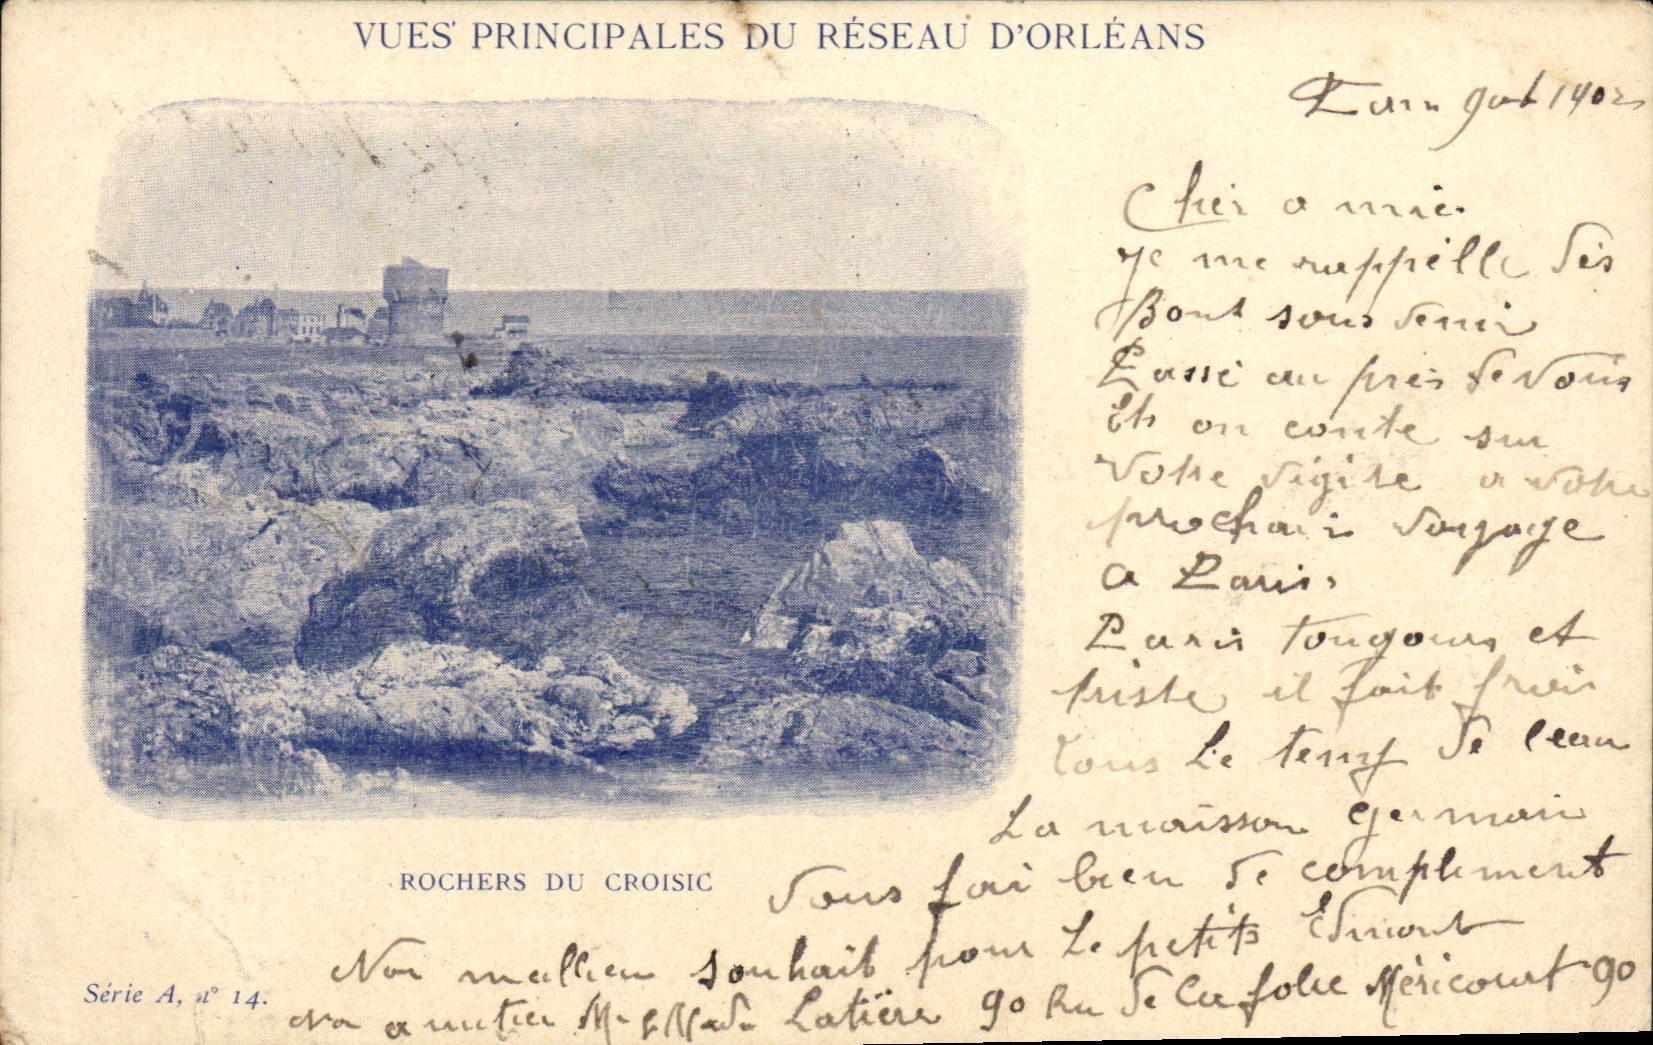 VUES PRINCIPALES DU RÉSEAU D'ORLÉANS
août 1902
Cher amie.
Je me rappelle des
Bont sous venir
Passé au près de vous
Et on conte sur
Votre visite a votre
prochain voyage
a Paris.
Paris tougours et
triste il fait froid
Tous Le temp de leau
La maisson germain
Vous fai bien de compliment
Nos meilleur souhait pour Le petits Edmont
Nos amitier Latière 90 Ru de la folie Méricourt 90
ROCHERS DU CROISIC
Série A, n° 14.